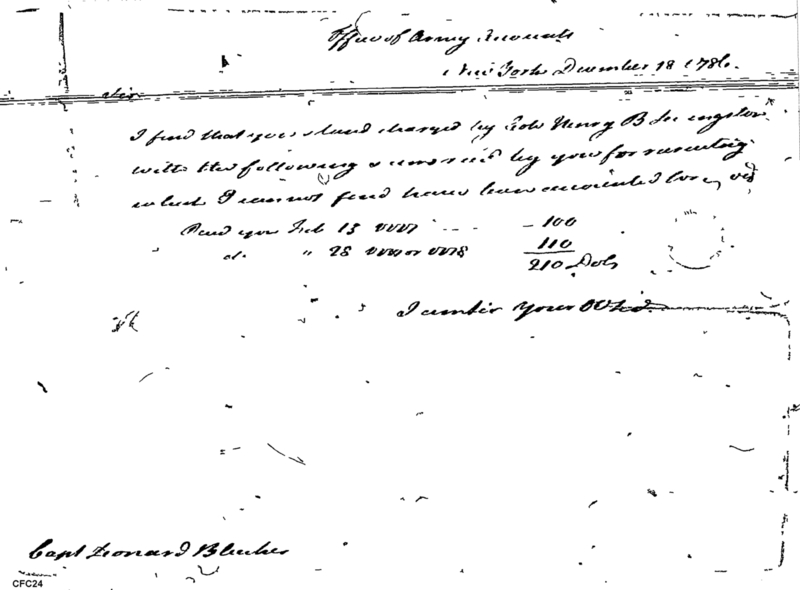 Office of Army Accounts
New York December 18 1786.
Sir
I find that you stand charged by Colo Henry B Livingston
with the following sums rec'd by you for recruiting
which I cannot find have been accounted for,
Paid you Feb 13 - 100
do. " 28 110
210 Dols
I am Sir Your
Capt Leonard Bleeker
CFC24